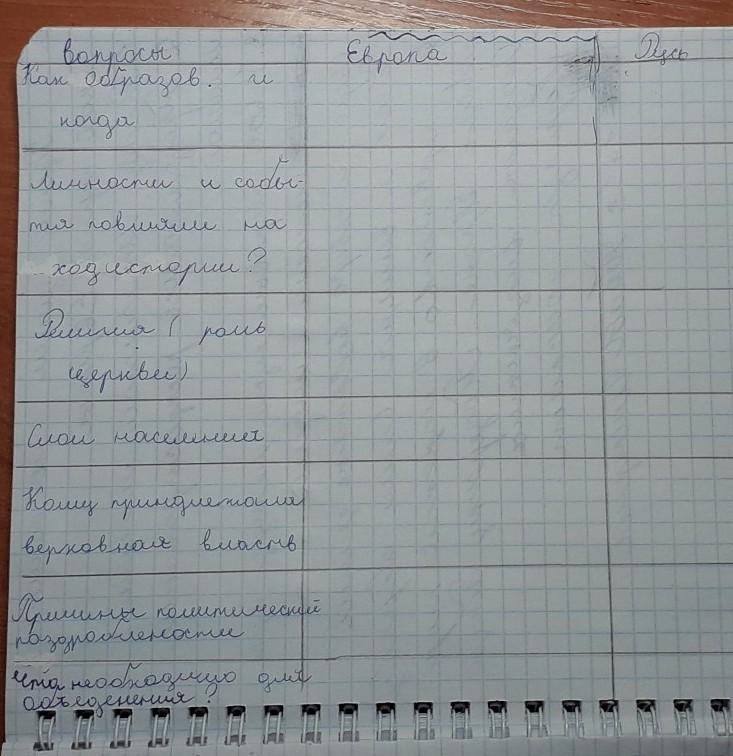 вопросы Европа Русь
Как образов. и
когда
Личности и собы-
тия повлияли на
ход истории?
Религия ( роль
церкви)
Слои населения
Кому принадлежала
верховная власть
Причины политической
раздроблености
Что необходимо для
объеденения?